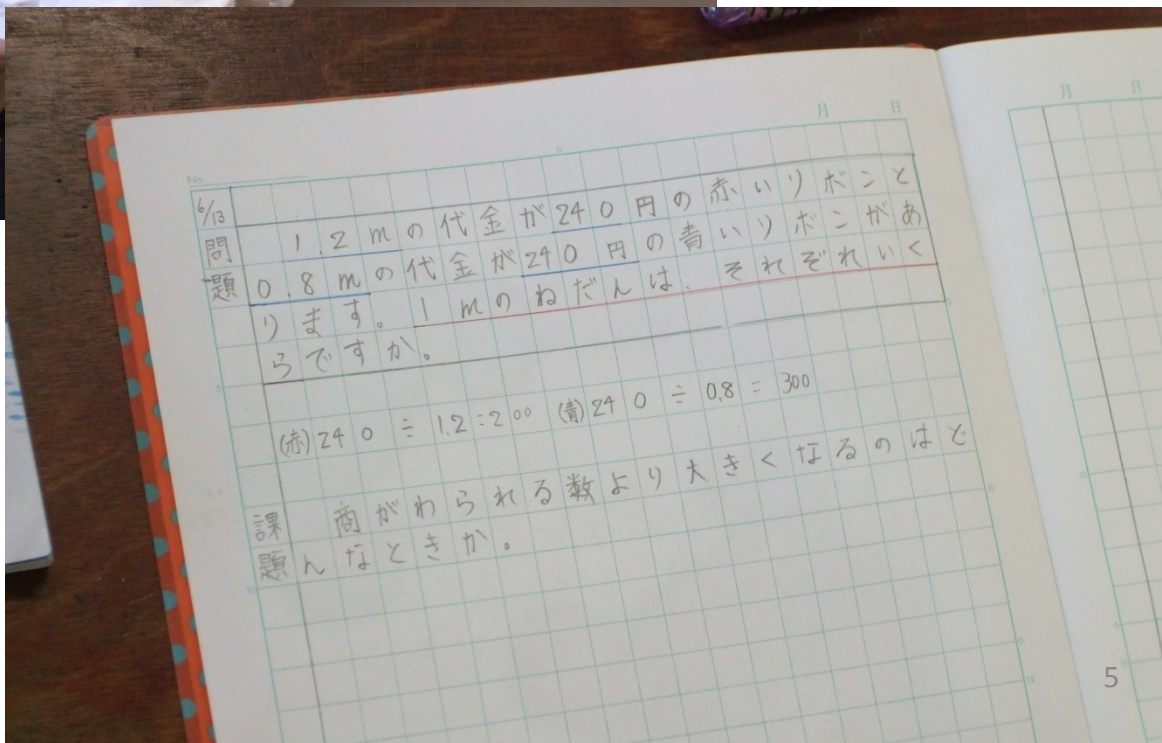 月 日
月 日
No.
6/13
問題 1.2mの代金が240円の赤いリボンと
0.8mの代金が240円の青いリボンがあ
ります。1mのねだんは、それぞれいく
らですか。
(赤)240÷1.2=200 (青)240÷0.8=300
課題 商がわられる数より大きくなるのはど
んなときか。
5